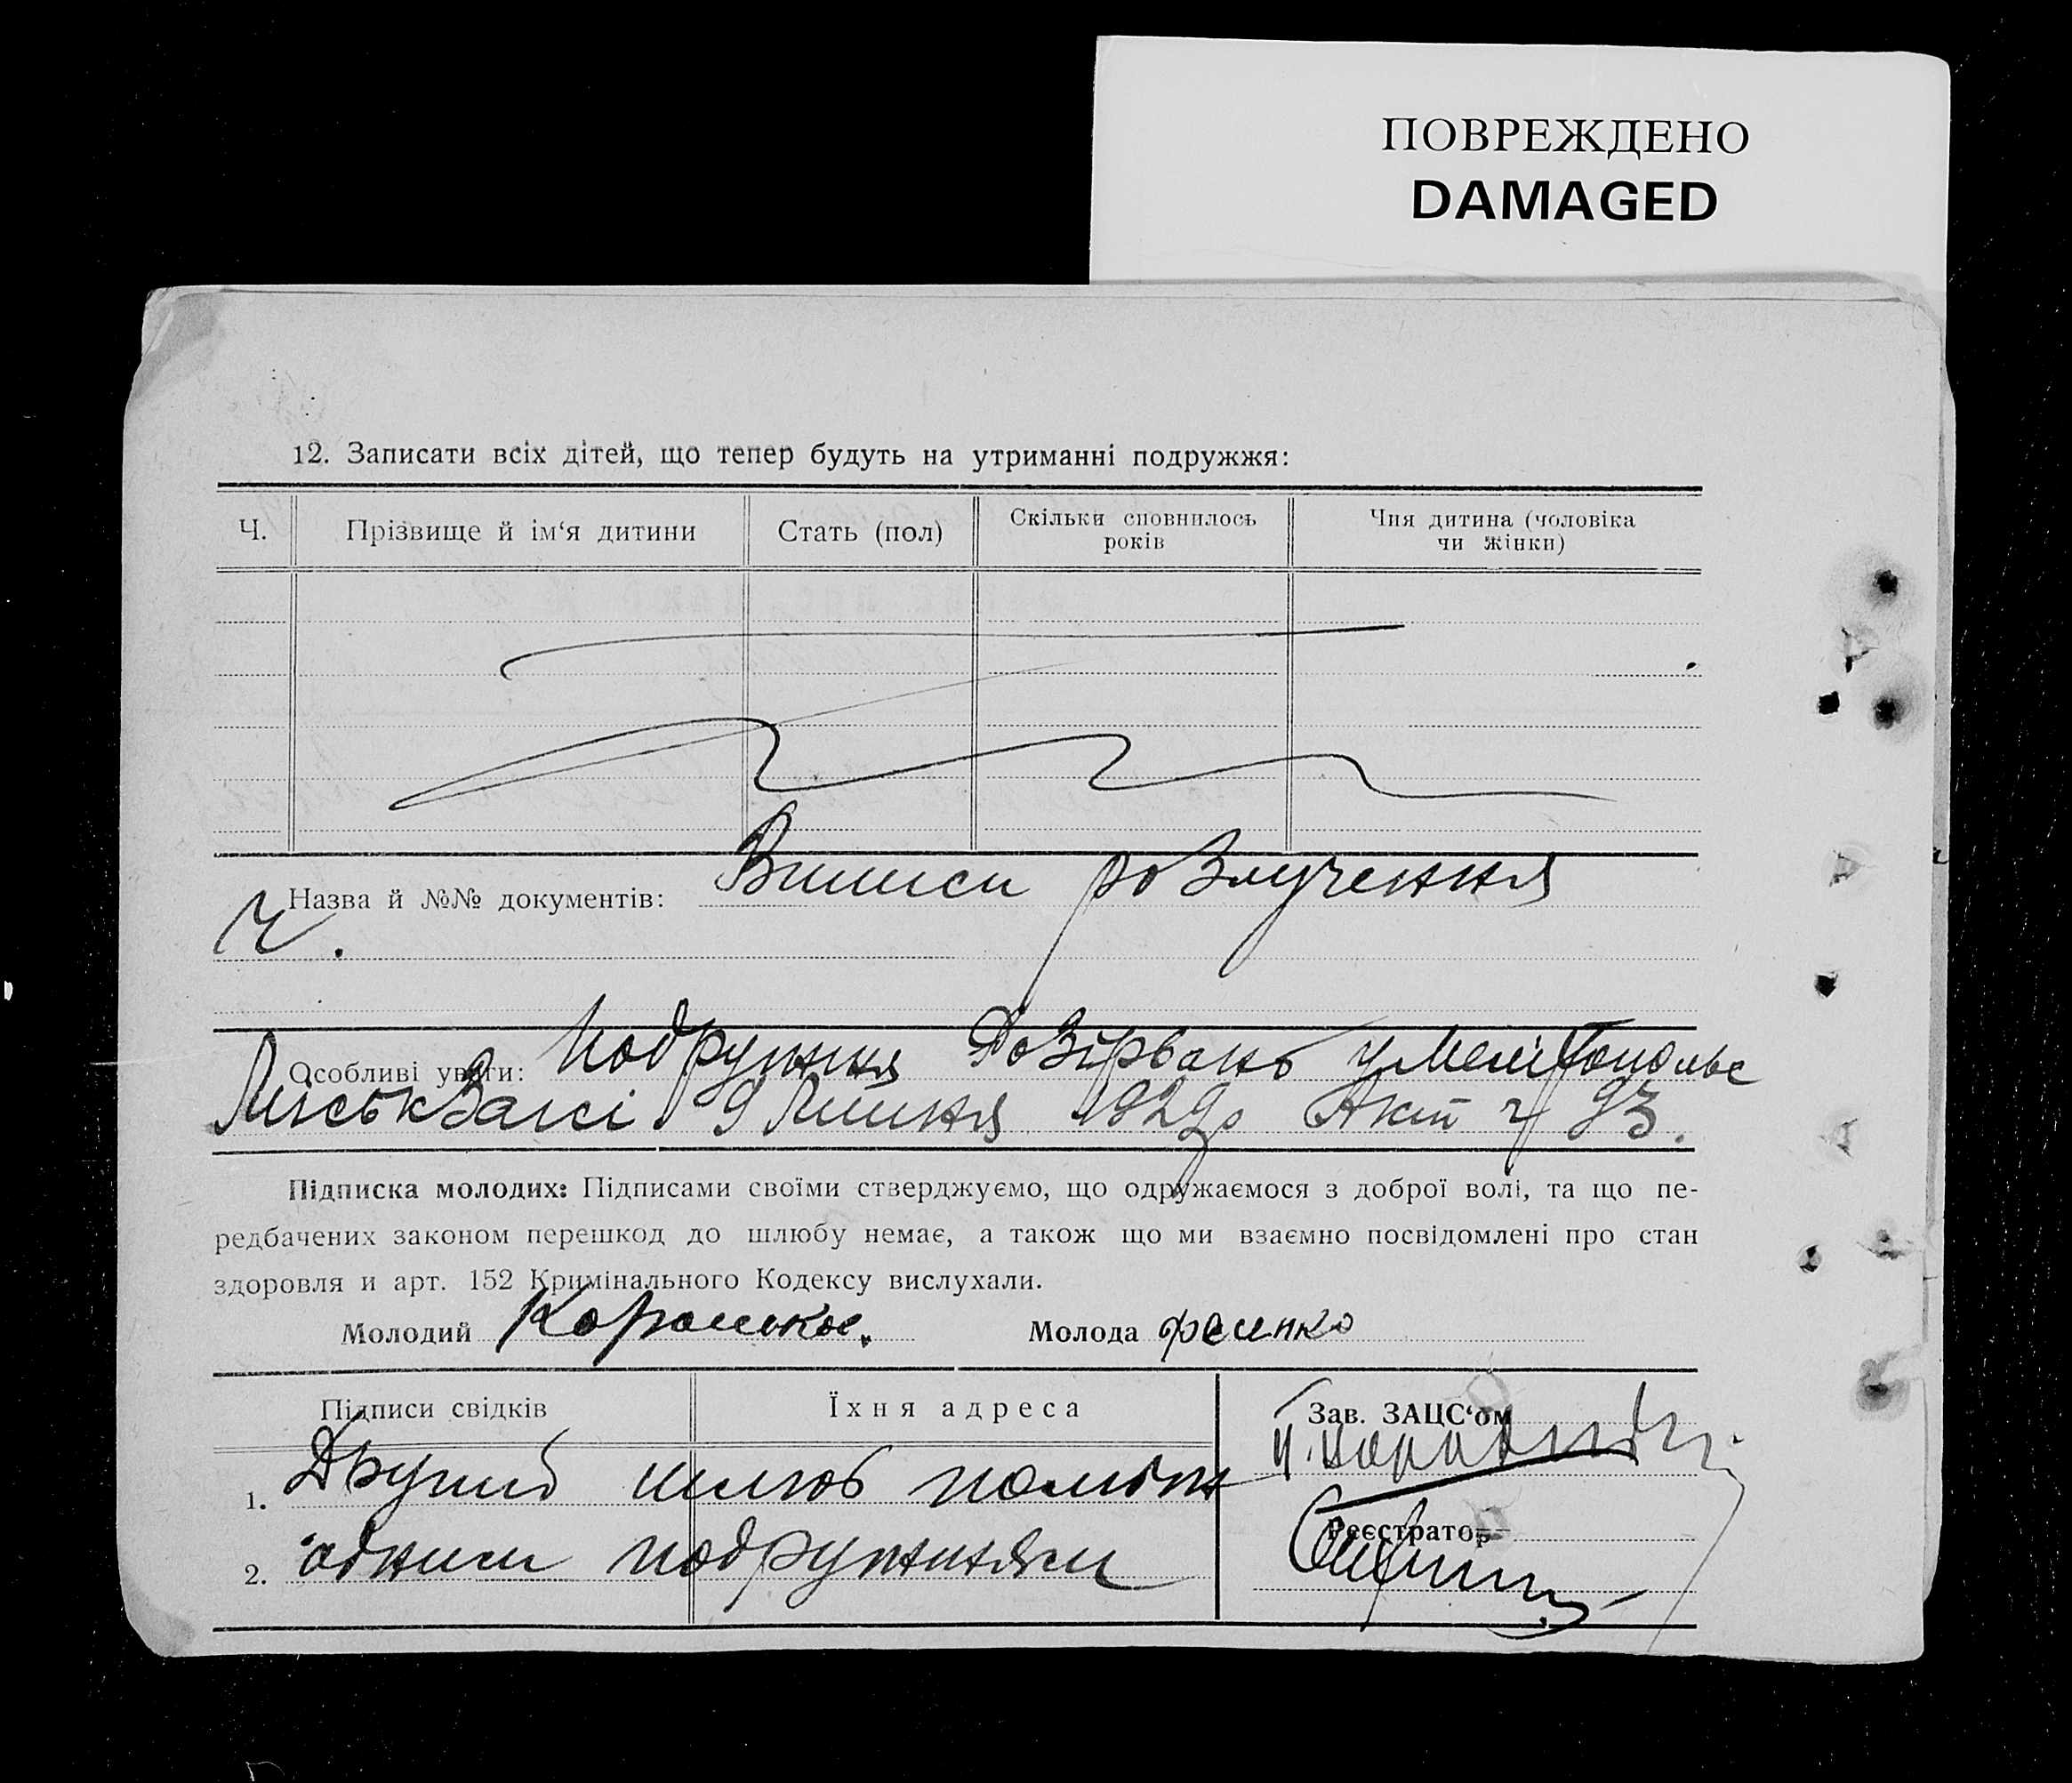 ПОВРЕЖДЕНО
DAMAGED
12. Записати всіх дітей, що тепер будуть на утриманні подружжя:
Ч. Прізвище й ім‘я дитини Стать (пол) Скільки сповнилось років Чия дитина (чоловіка чи жінки)
Назва й №№ документів: Виписи розлучення
Ч.
Особливі уваги: Подружжя Розірвано у Мелітопольс
МіськЗагсі 9 Липня 1929р Акт ч 93.
Підписка молодих: Підписами своїми стверджуємо, що одружаємося з доброї волі, та що пе-
редбачених законом перешкод до шлюбу немає, а також що ми взаємно посвідомлені про стан
здоровля и арт. 152 Кримінального Кодексу вислухали.
Молодий Молода
Підписи свідків Їхня адреса Зав. ЗАЦС‘ом
1. Другий шлюб поміж
Реєстратор
2. одним подружжям